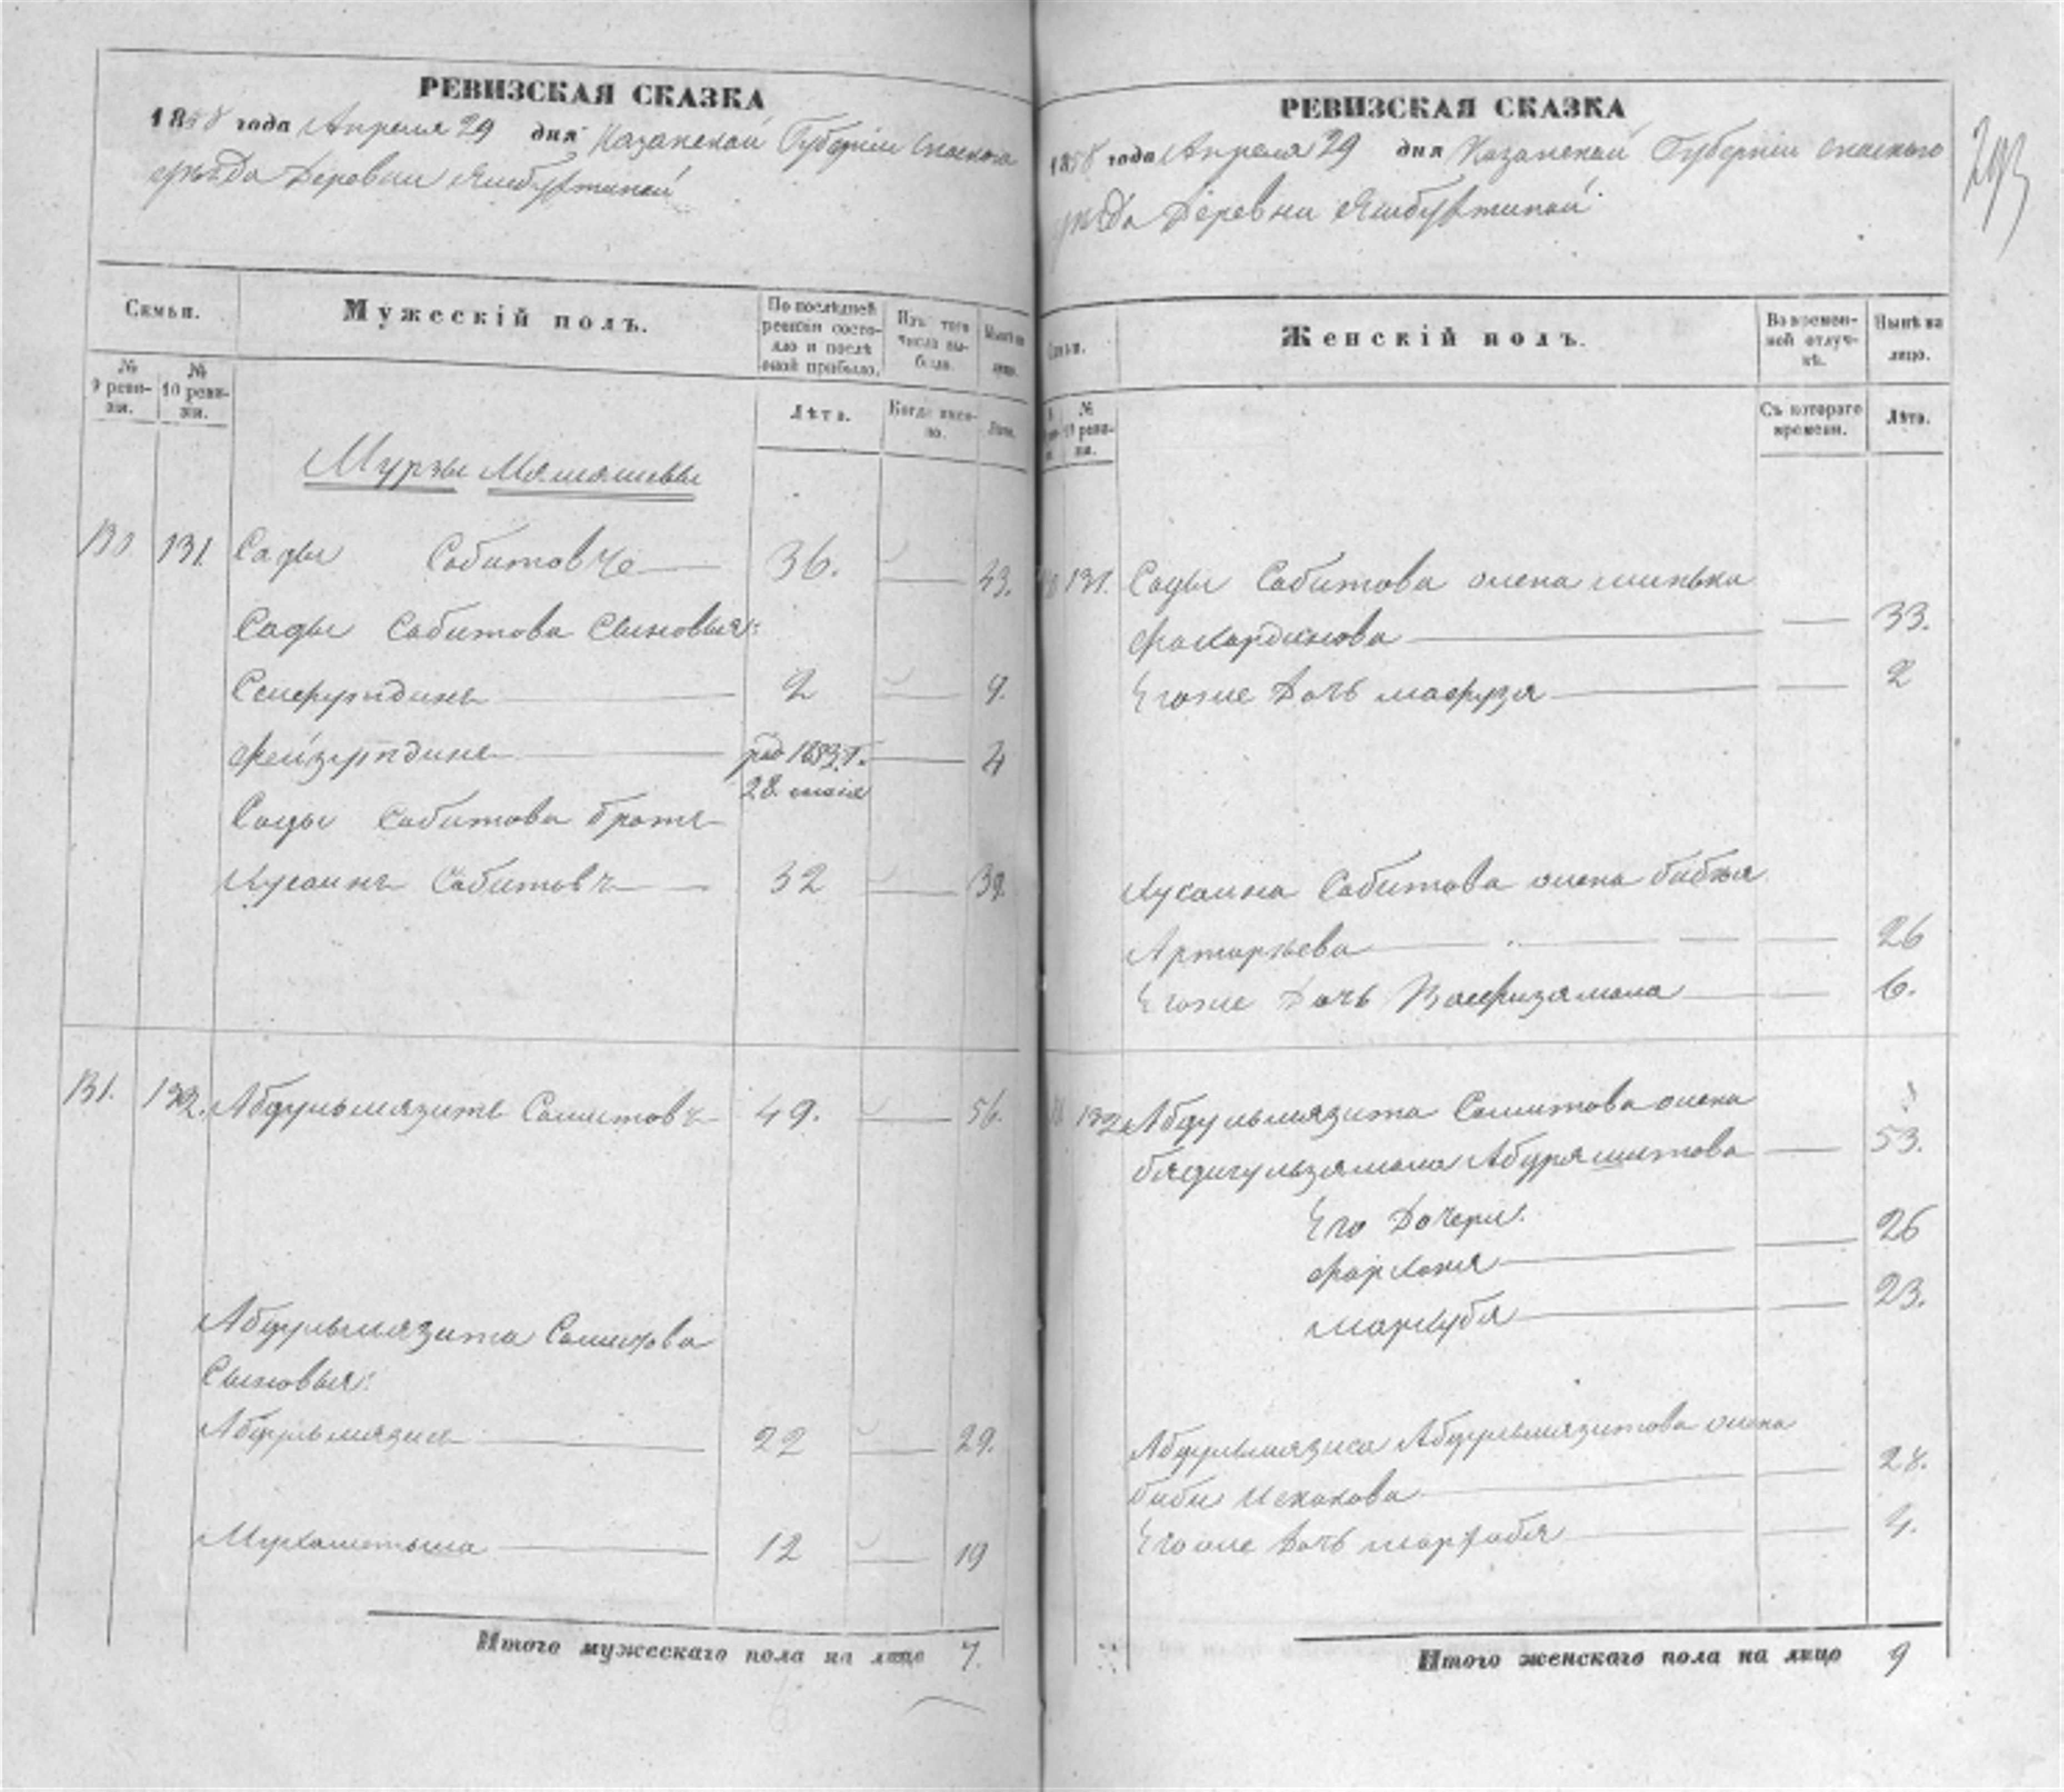 РЕВИЗСКАЯ СКАЗКА
1858 года Апреля 29 дня Казанской Губерніи Спаскаго
уѣзда Деревни Ямбухтиной
Семьи.
Мужескій полъ.
По послѣдней ревизіи состояло и послѣ оной прибыло.
Изъ того числа выбыло.
Нынѣ на лицо.
№ 9 ревизіи.
№ 10 ревизіи.
Лѣта.
Когда именно.
Лѣта.
Мурзы Мамашевы
130 131. Сады Сабитовъ 36. 43.
Сады Сабитова Сыновья:
Сейфундинъ 2 9.
Фейзундинъ род 1853 г. 4
28. июля
Сады Сабитова братъ
Хусаинъ Сабитовъ 32 39.
131. 132. Абдульмязитъ Самитовъ 49. 56.
Абдульмязита Самитова
Сыновья:
Абдульмязисъ 22 29.
Мухаметьша 12 19
Итого мужескаго пола на лицо 7.
РЕВИЗСКАЯ СКАЗКА
1858 года Апреля 29 дня Казанской Губерніи Спаскаго
уѣзда Деревни Ямбухтиной
203
Семьи.
Женскій полъ.
Во временной отлучкѣ.
Нынѣ на лицо.
№ 10 ревизіи.
Съ котораго времени.
Лѣта.
131. Сады Сабитова жена
Фахардинова 33.
Егоже дочь мафрузя 2
Хусаина Сабитова жена бибья
26
Егоже дочь 6.
132 Абдульмязита Самитова жена
бядигульзямала Абдряшитова 53.
Его дочери:
Фархония 26
махуба 23.
Абдульмязиса Абдульмязитова жена
биби Исхакова 28.
Егоже дочь 4.
Итого женскаго пола на лицо 9